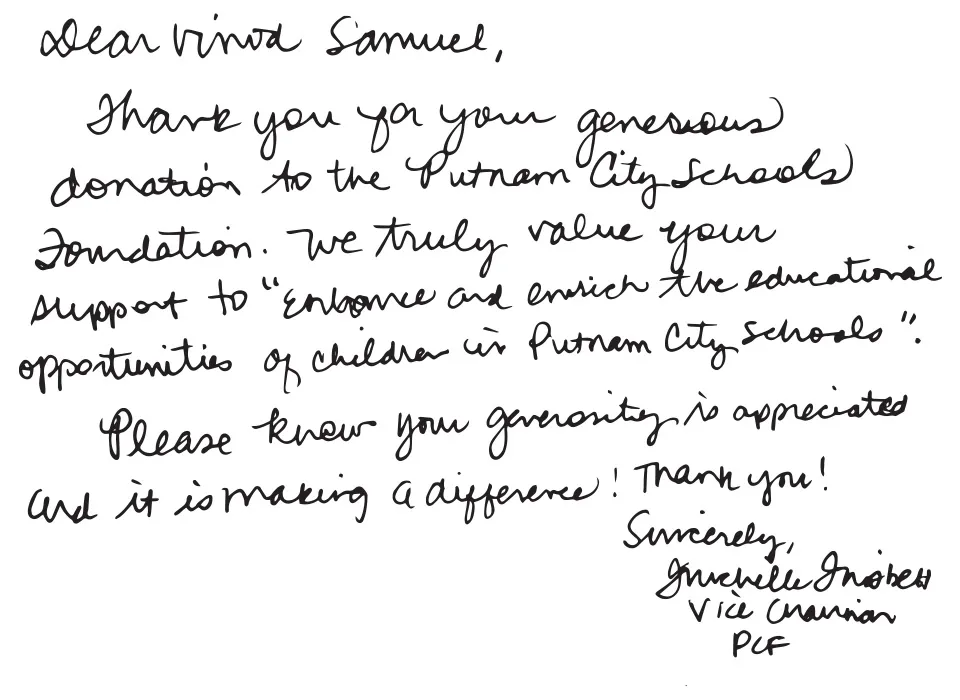 Dear Vinod Samuel,
Thank you for your generous
donation to the Putnam City Schools
Foundation. We truly value your
support to "enhance and enrich the educational
opportunities of children in Putnam City Schools".
Please know your generosity is appreciated
and it is making a difference! Thank you!
Sincerely,
Michelle
Vice Chairman
PCF